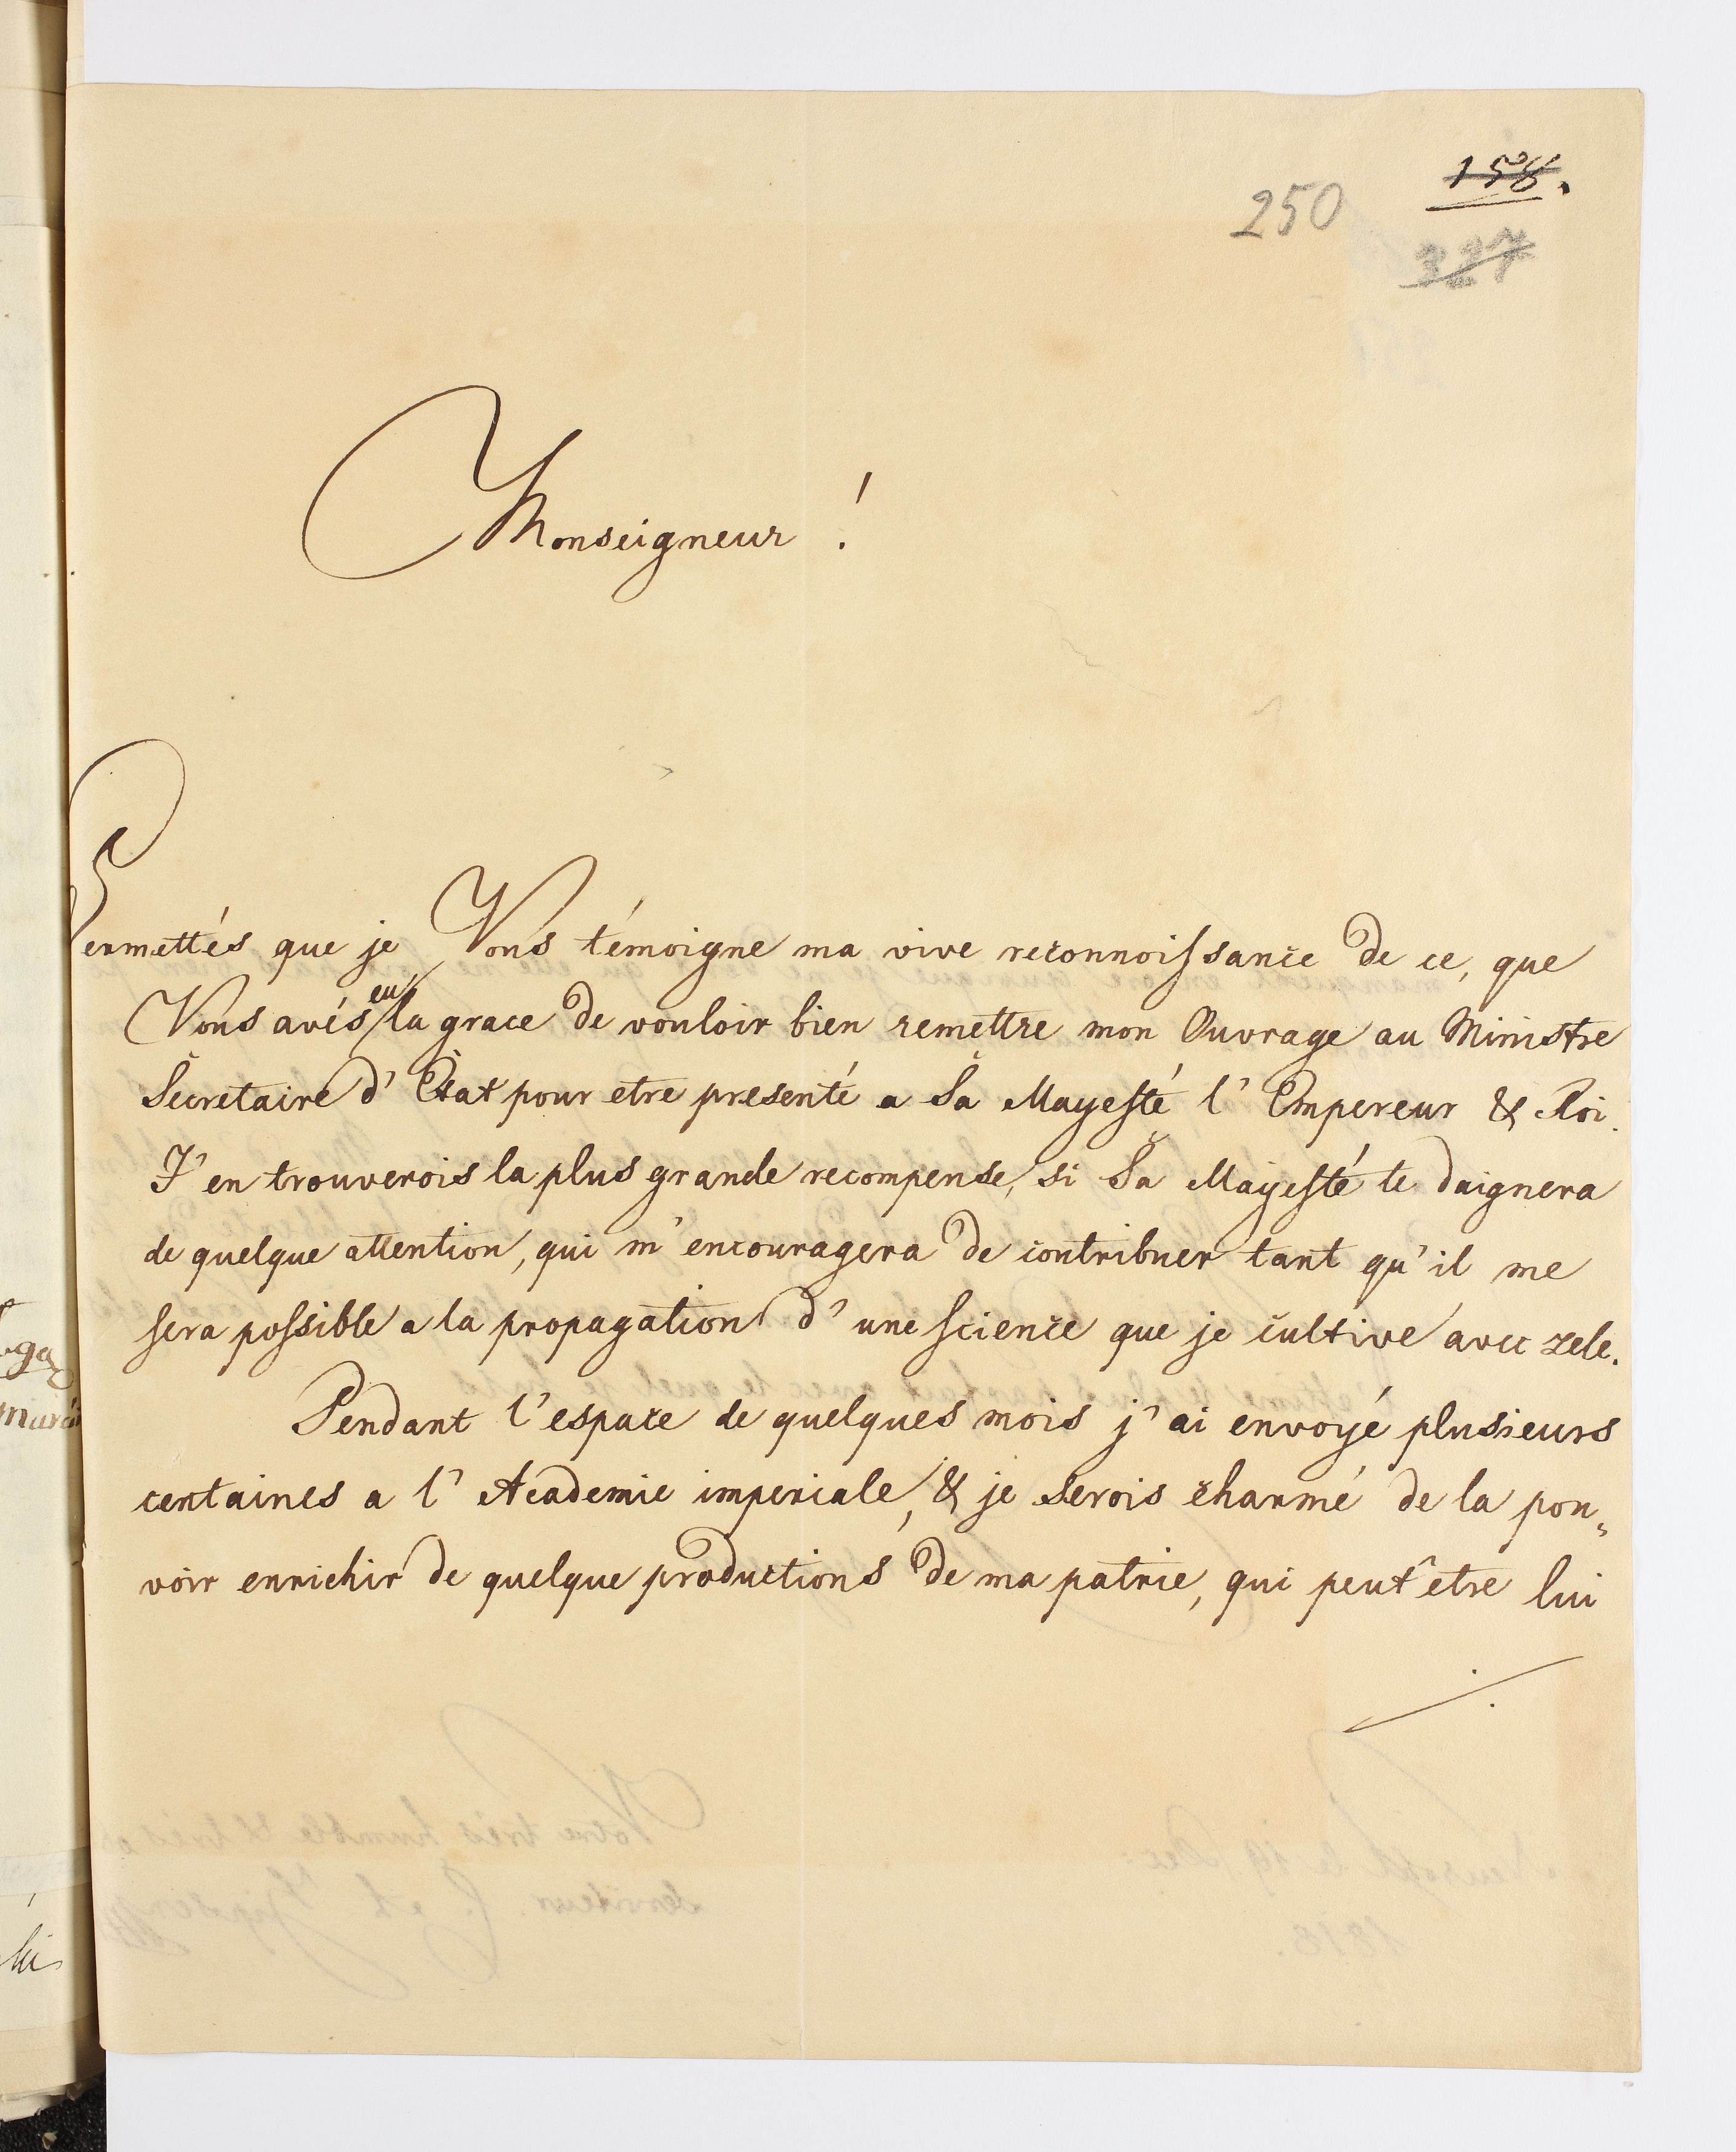 158.
250
327
Monseigneur !
Permettés que je Vous témoigne ma vive reconnoissance de ce, que
Vous avés eu la grace de vouloir bien remettre mon Ouvrage au Ministre
Secretaire d' Etat pour etre presenté a Sa Mayesté l' Empereur & Roi.
J' en trouverois la plus grande recompense, si Sa Mayesté le daignera
de quelque attention, qui m' encouragera de contribuer tant qu' il me
sera possible a la propagation d' une science que je cultive avec zele.
Pendant l' espace de quelques mois j' ai envoyé plusieurs
centaines a l' Academie imperiale, & je serois charmé de la pou„
voir enrichir de quelque productions de ma patrie, qui peut etre lui